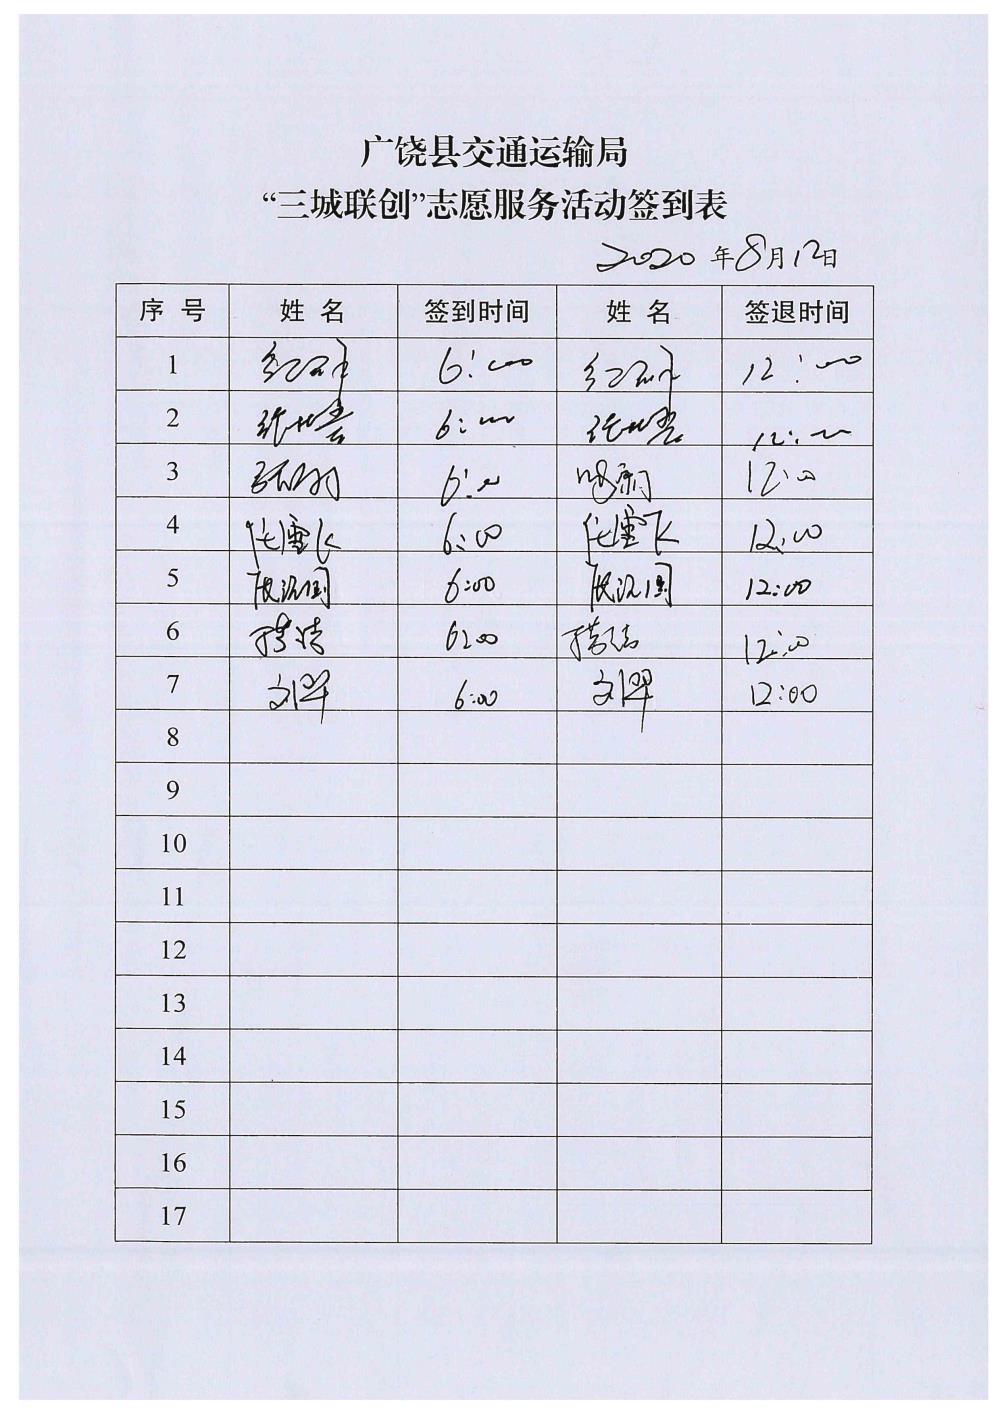 广饶县交通运输局
“三城联创”志愿服务活动签到表
2020年8月12日
序号 姓名 签到时间 姓名 签退时间
1 6:00 12:00
2 6:00 12:00
3 6:00 12:00
4 任雪飞 6:00 任雪飞 12:00
5 6:00 12:00
6 6:00 12:00
7 刘翠 6:00 刘翠 12:00
8
9
10
11
12
13
14
15
16
17